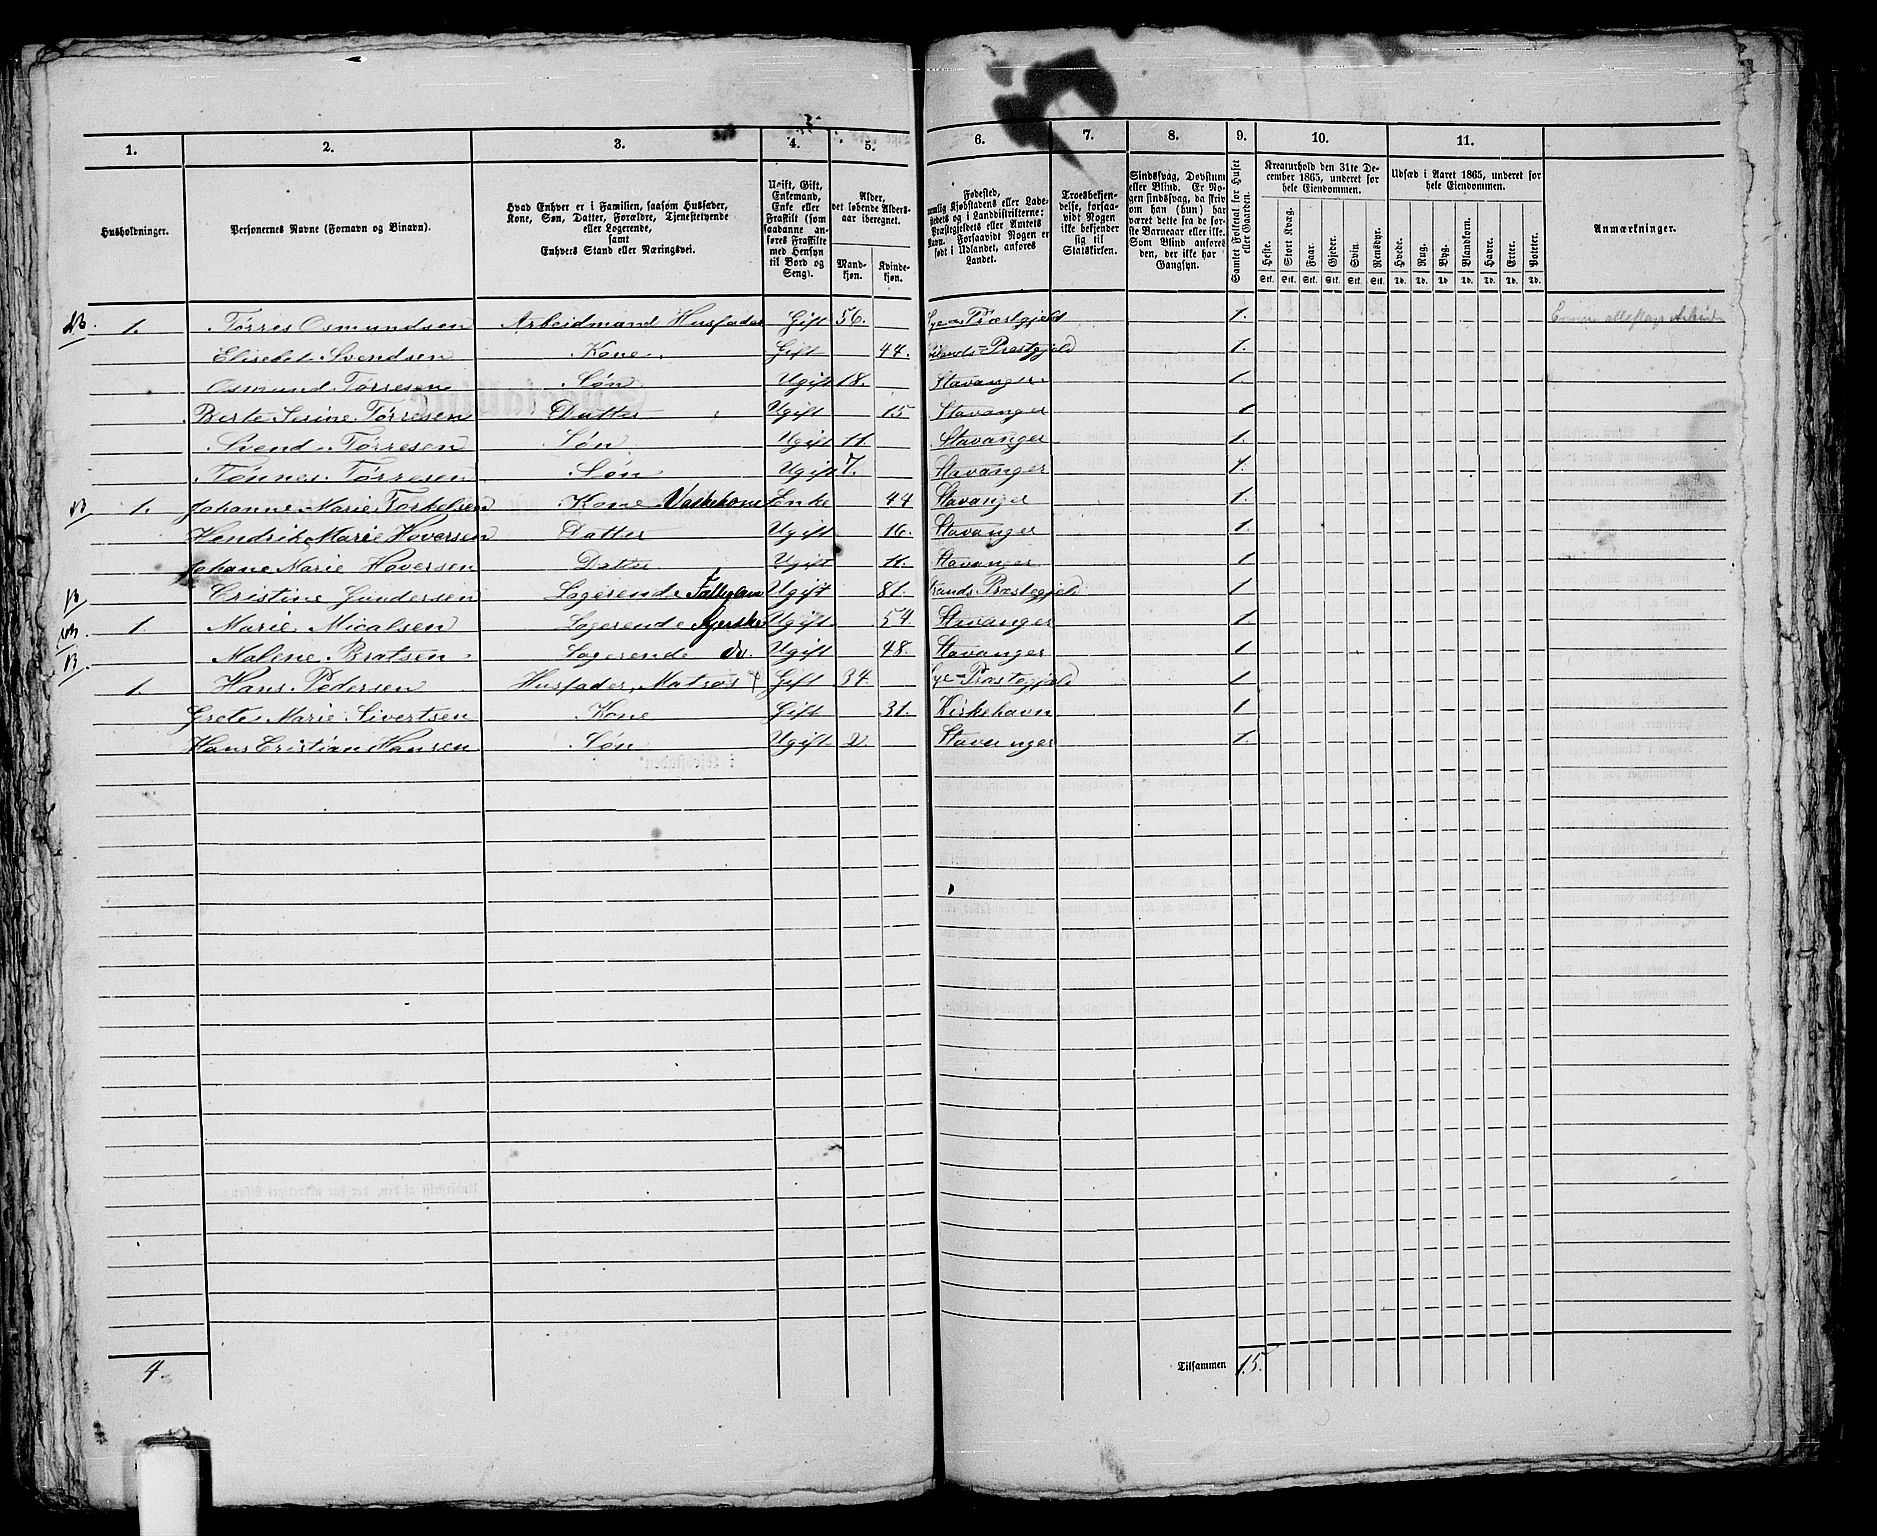 1. 2. 3. 4. 5. 6. 7. 8. 9. 10. 11.
Husholdninger. Personernes Navne (Fornavn og Binavn). Hvad Enhver er i Familien, saasom Husfader, Kone, Søn, Datter, Forældre, Tjenestetyende eller Logerende, samt Enhvers Stand eller Næringsvei. Ugift, Gift, Enkemand, Enke eller Fraskilt (som saadanne anføres Fraskilte med Hensyn til Bord og Seng). Alder, det løbende Aldersaar iberegnet. Mandkjøn. Kvindekjøn. Fødested, nemlig Kjøbstadens eller Ladestedets og i Landdistrikterne: Præstegjeldets eller Amtets Navn. Forsaavidt Nogen er født i Udlandet, anføres Landet. Troesbekjendelse, forsaavidt Nogen ikke bekjender sig til Statskirken. Sindssvag, Døvstum eller Blind. Er Nogen sindssvag, da skrives om han (hun) har været dette fra de første Barneaar eller ikke. Som Blind anføres den, der ikke har Gangsyn. Samlet Folketal for Huset eller Gaarden. Kreaturhold den 31te December 1865, underet for hele Eiendommen. Udsæd i Aaret 1865, underet for hele Eiendommen. Anmærkninger.
Heste. Stort Kvæg. Faar. Gjeder. Svin. Rensdyr. Hvede. Rug. Byg. Blandkorn. Havre. Erter. Poteter.
Stk. Stk. Stk. Stk. Stk. Stk. Td. Td. Td. Td. Td. Td. Td.
1. Tørres Osmundsen Arbeidmand Husfader Gift 56. Præstgjeld 1.
Elisebet Svendsen Kone Gift 44. Præstgjeld 1.
Osmund Tørresen Søn Ugift 18. Stavanger 1.
Berte Serine Tørresen Datter Ugift 15 Stavanger 1
Svend Tørresen Søn Ugift 11. Stavanger 1.
Tønnes Tørresen Søn Ugift 7. Stavanger 1.
1. Johanne Marie Torkelsen Kone Vaskekone Enke 44 Stavanger 1.
Hendrik Marie Haversen Datter Ugift 16. Stavanger 1.
Johane Marie Haversen Datter Ugift 11. Stavanger 1
Cristine Gundersen Logerende Fattiglem Ugift 81. Strands Præstegjeld 1
1. Marie Micalsen Logerende Syerske Ugift 54. Stavanger 1
Malene Bratsen Logerende do. Ugift 48. Stavanger 1.
1. Hans Pedersen Husfader, Matros Gift 34. Lye Præstegjeld 1
Grete Marie Sivertsen Kone Gift 31. Kirkehavn 1.
Hans Cristian Hansen Søn Ugift 2. Stavanger 1.
4. Tilsammen 15.